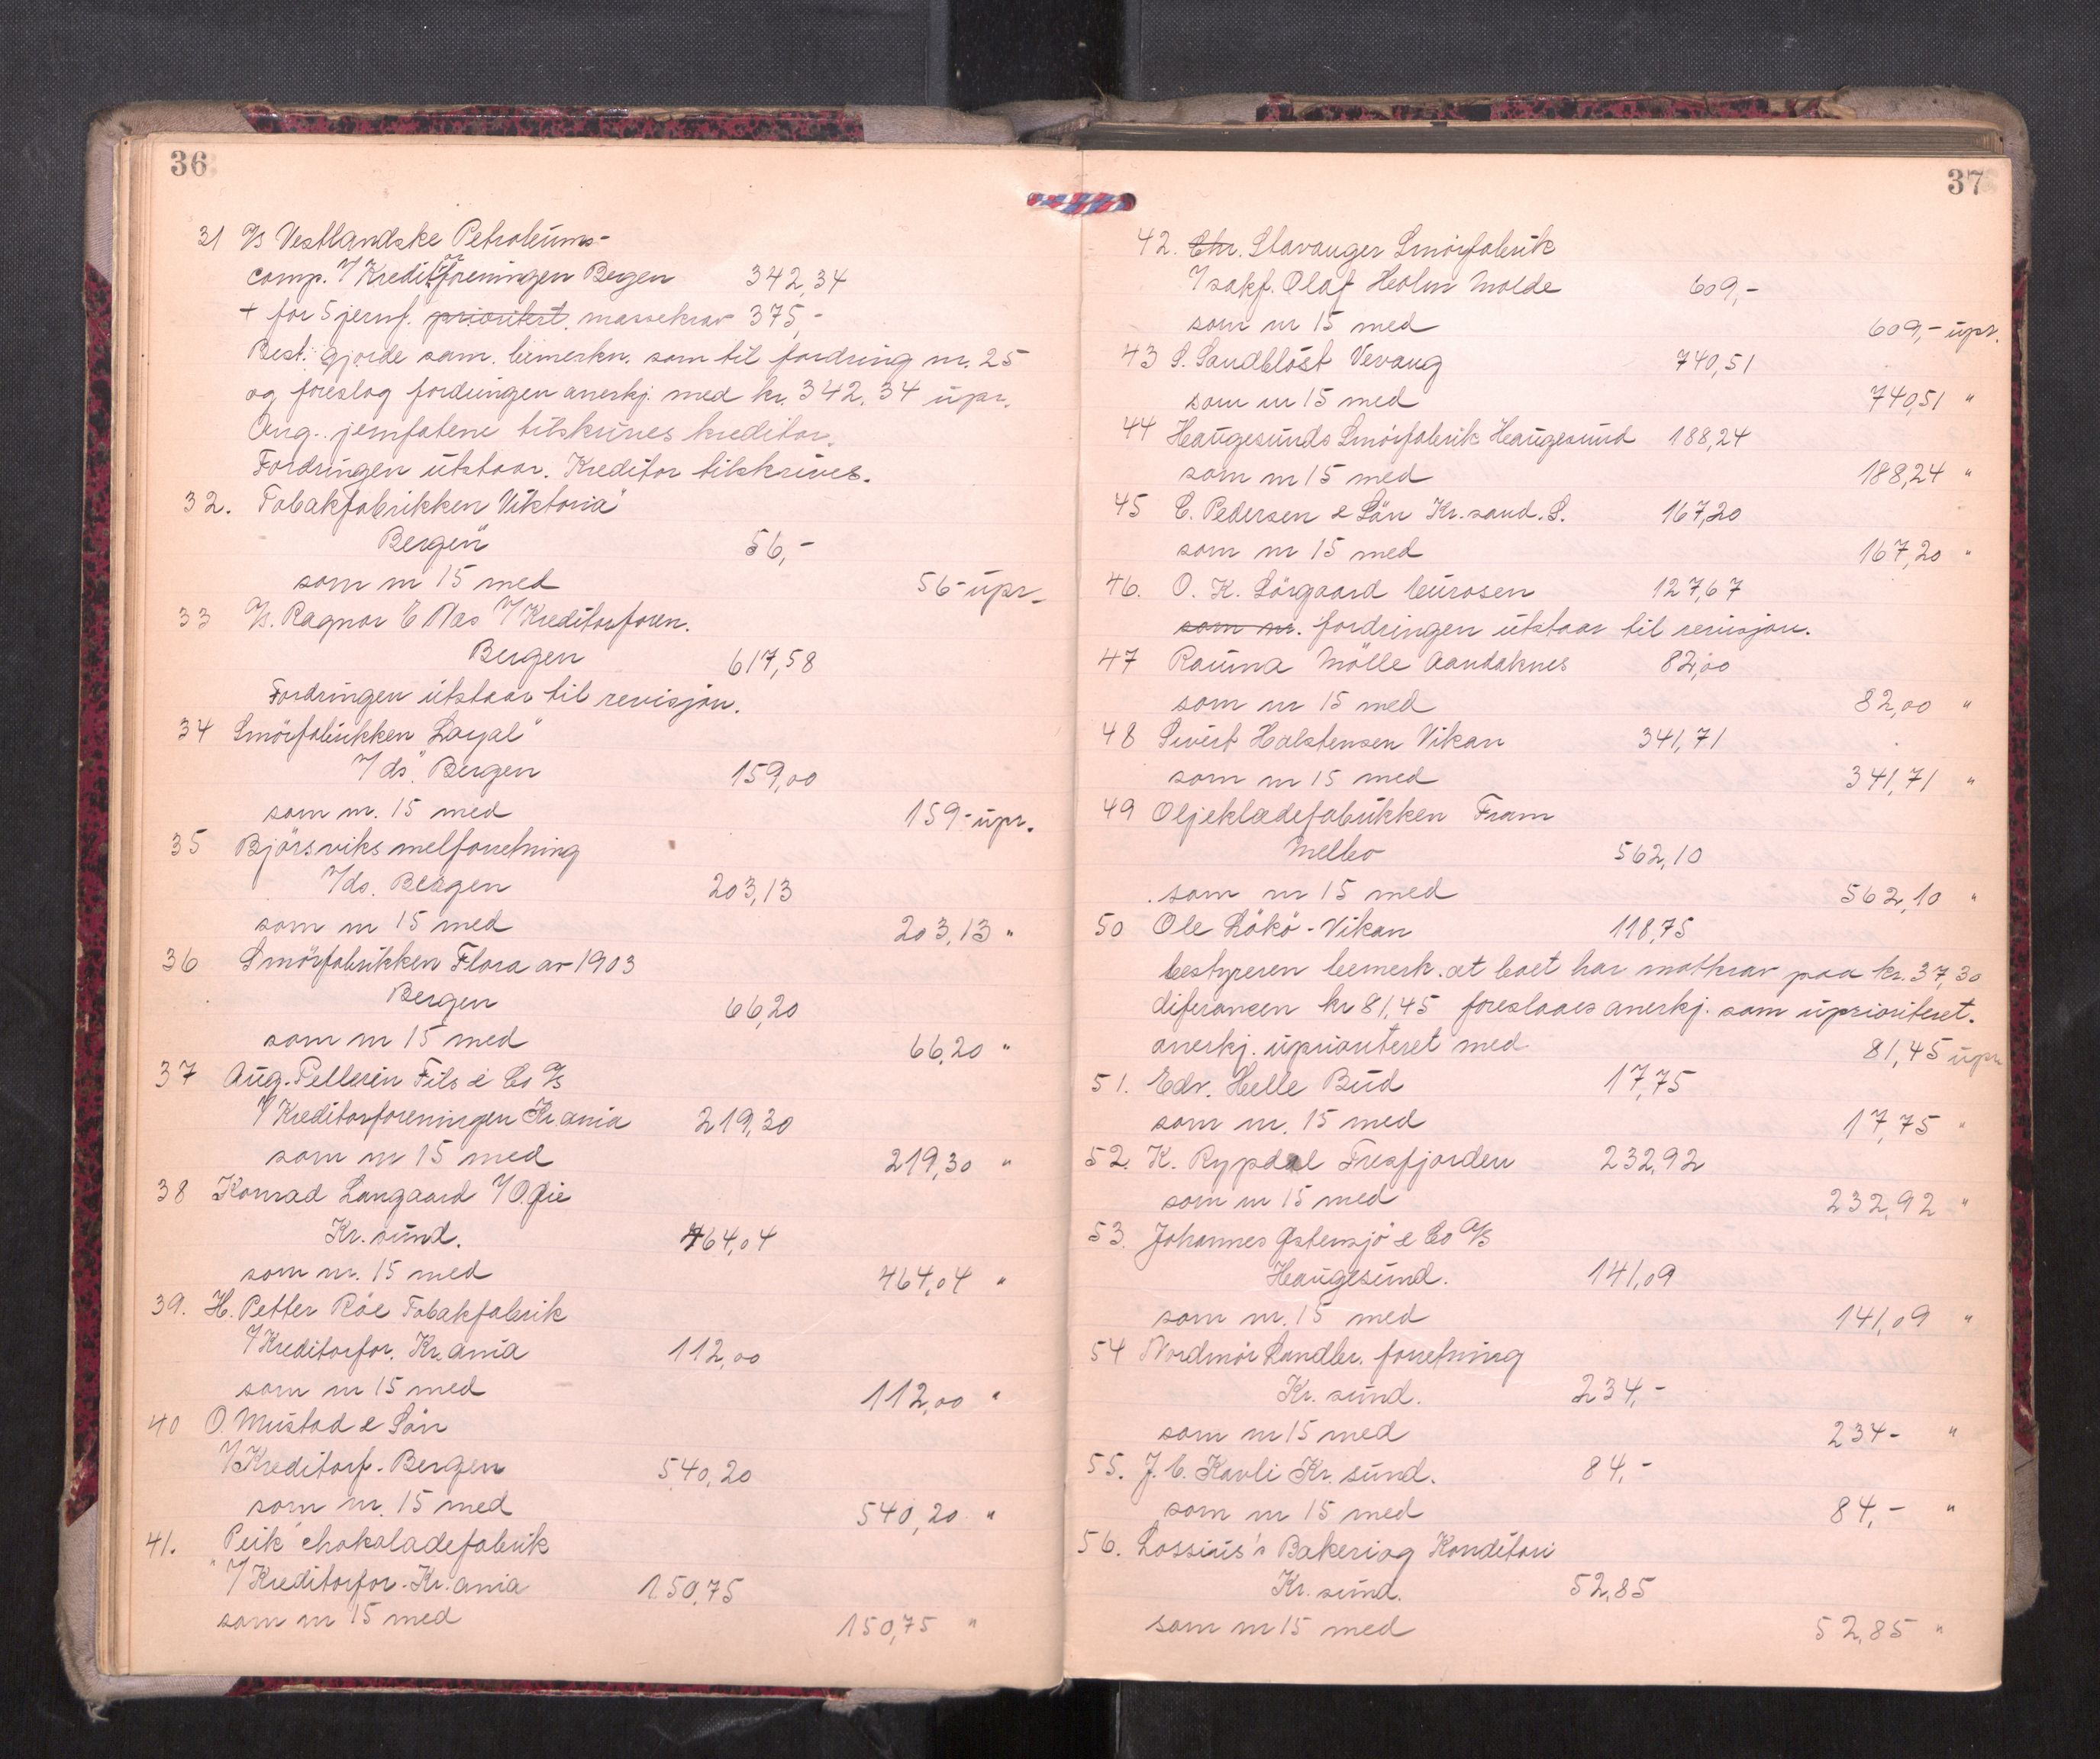 36
31 A/s Vestlandske Petroleums-
comp. v/ Kreditorforeningen Bergen 342,34
+ for 5 jernf. prioritert. massekrav 375,-
Best. gjorde sam. bemerkn. som til fordring nr. 25
og foreslog fordringen anerkj. med kr. 342.34 upr.
Ang. jernfatene tilskrives kreditor.
Fordringen utstaar. Kreditor tilskrives.
32. Tobakfabrikken Viktoria"
Bergen 56,-
som nr 15 med 56- upr.
33 A/s. Ragnar E Næs v/ Kreditorforen.
Bergen 617,58
Fordringen utstaar til revisjon.
34 Smörfabrikken Loyal"
v/ ds. Bergen 159,00
som nr. 15 med 159- upr.
35 Björsviks melforretning
v/ds. Bergen 203,13
som nr 15 med 203,13 "
36 Smörfabrikken Flora av 1903
Bergen 66,20
som nr 15 med 66,20 "
37 Aug. Pellerin Fils & Co A/s
v/ Kreditorforeningen Kr.ania 219,30
som nr 15 med 219,30 "
38 Konrad Langaard v/ O. Øie
Kr. sund. 464,04
som nr. 15 med 464,04 "
39. H. Petter Röe Tobakfabrik
v/ Kreditorfor. Kr.ania 112,00
som nr 15 med 112,00 "
40 O. Mustad & Sön
v/ Kreditorf. Bergen 540,20
som nr. 15 med 540,20 "
41. Peik" chokoladefabrik
" v/ Kreditorfor. Kr.ania 150,75
som nr 15 med 150,75 "
37
42. Chr. Stavanger Smörfabrik
v/ sakf. Olaf Holm Molde 609,-
som nr 15 med 609,- upr.
43 S. Sandblöst Vevang 740,51
som nr 15 med 740,51 "
44 Haugesunds Smörfabrik Haugesund 188,24
som nr 15 med 188,24 "
45 C. Pedersen & Sön Kr.sand. S. 167,20
som nr 15 med 167,20 "
46. O. K. Sörgaard Eurosen 127,67
som nr. fordringen utstaar til revisjon.
47 Rauma Mölle Aandalsnes 82,00
som nr 15 med 82,00 "
48 Sivert Halstensen Vikan 341,71
som nr 15 med 341,71 "
49 Oljeklædefabrikken Fram
Melbo 562,10
som nr 15 med 562,10 "
50 Ole Rökö - Vikan 118,75
bestyreren bemerk. at boet har motkrav paa kr. 37,30
diferansen kr 81,45 foreslaaes anerkj. som uprioriteret.
anerkj. uprioriteret med 81,45 upr
51. Edv. Helle Bud 17,75
som nr. 15 med 17,75 "
52. K. Rypdal Tresfjorden 232,92
som nr 15 med 232,92 "
53. Johannes Østensjö & Co A/s
Haugesund. 141,09
som nr. 15 med 141,09 "
54 Nordmör Landbr. forretning
Kr. sund. 234,-
som nr 15 med 234- "
55. J. C. Kavli Kr. sund. 84,-
som nr 15 med 84,- "
56. Lossius's Bakeri og Konditori
Kr. sund. 52,85
som nr 15 med 52,85 "